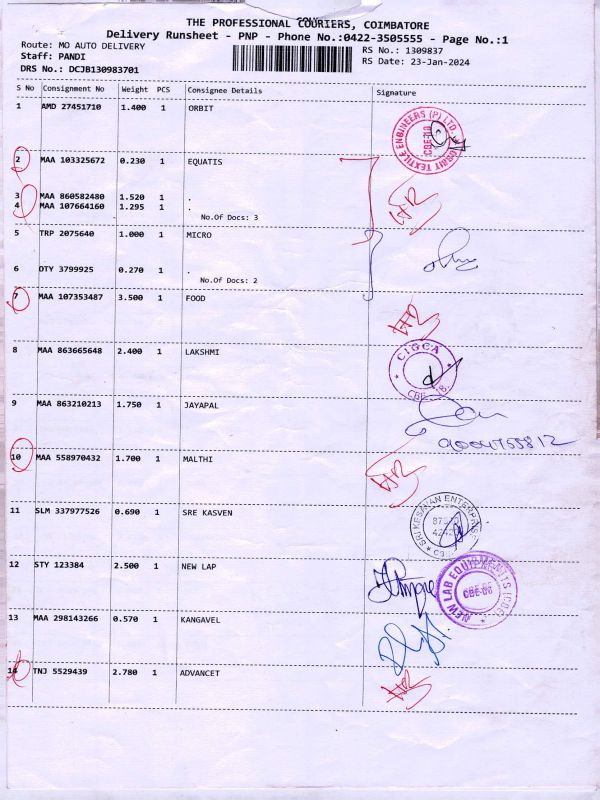 THE PROFESSIONAL COURIERS, COIMBATORE
Delivery Runsheet - PNP - Phone No.:0422-3505555 - Page No.:1
Route: MO AUTO DELIVERY RS No.: 1309837
Staff: PANDI RS Date: 23-Jan-2024
DRS No.: DCJB130983701
S No Consignment No Weight PCS Consignee Details Signature
1 AMD 27451710 1.400 1 ORBIT
ORBIT TEXTILE ENGINEERS (P) LTD.
2 MAA 103325672 0.230 1 EQUATIS
3 MAA 860582480 1.520 1 .
4 MAA 107664160 1.295 1 .
No.Of Docs: 3
5 TRP 2075640 1.000 1 MICRO
6 OTY 3799925 0.270 1 .
No.Of Docs: 2
7 MAA 107353487 3.500 1 FOOD
8 MAA 863665648 2.400 1 LAKSHMI
CBE
9 MAA 863210213 1.750 1 JAYAPAL
9004755812
10 MAA 558970432 1.700 1 MALTHI
11 SLM 337977526 0.690 1 SRE KASVEN
12 STY 123384 2.500 1 NEW LAP
NEW LAB EQUIPMENTS
13 MAA 298143266 0.570 1 KANGAVEL
14 TNJ 5529439 2.780 1 ADVANCET